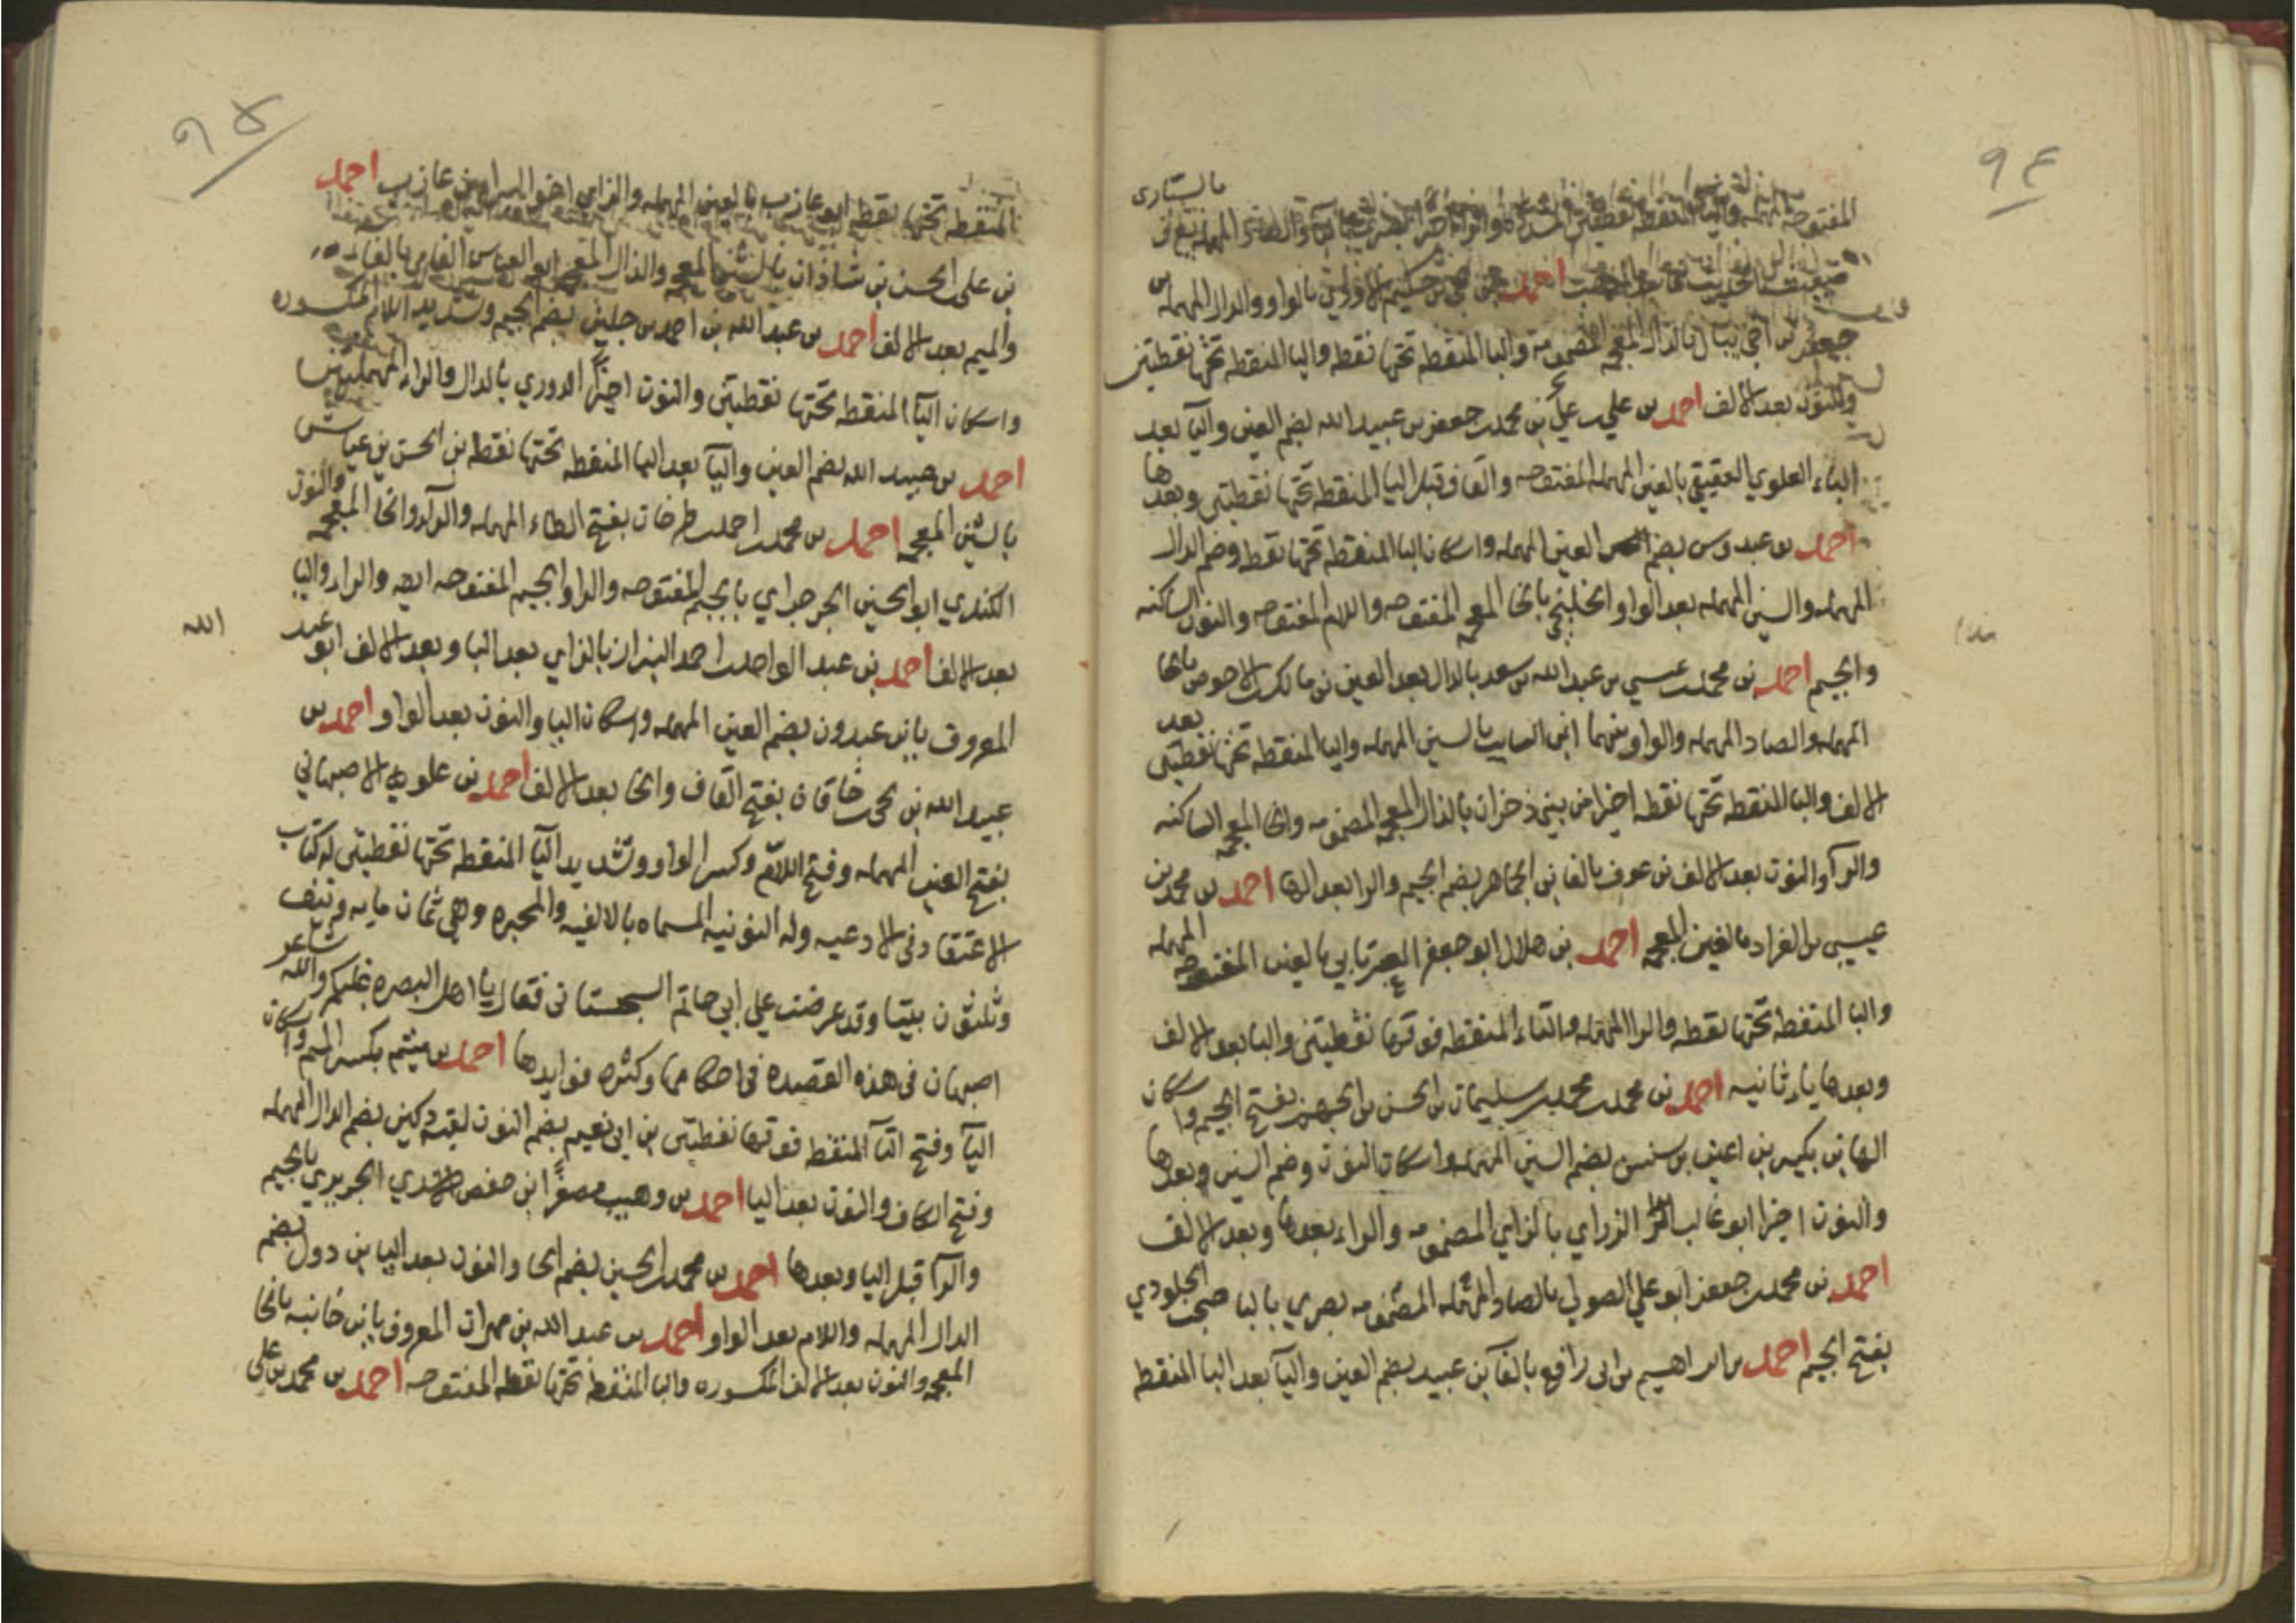 ٩٤
بالستارى
المفتوحة المهمله واليا المنقطه نقطتين
ضعيف الحديث احمد بن يحيى بن حكيم الاودي بالواو والدال المهمله بن
جعفر بن اخي ذبيان بالذال المعجمه المضمومه والبا المنقطه تحتها نقطه واليا المنقطه تحتها نقطتين
والنون بعد الالف احمد بن علي بن محمد بن جعفر بن عبيد الله بضم العين واليآ بعد
الباء العلوي العقيقي بالعين المهمله المفتوحه والقاف قبل اليا المنقطه تحتها نقطتين وبعدها
احمد بن عبدوس بضم العين المهمله واسكان البا المنقطه تحتها نقطه وضم الدال
المهمله والسين المهمله بعد الواو الخلنجي بالخا المعجمه المفتوحه واللام المفتوحه والنون الساكنه
والجيم احمد بن محمد بن عيسى بن عبد الله بن سعد بالدال بعد العين بن مالك بن الاحوص بالحا
المهمله والصاد المهمله والواو بينهما ابن السايب بالسين المهمله واليا المنقطه تحتها نقطتين بعد
الالف والبا المنقطه تحتها نقطه اخيرا من بني ذخران بالذال المعجمه المضمومه والخا المعجمه الساكنه
والرآ والنون بعد الالف بن عوف بالفا بن الجماهر بضم الجيم والرا بعد الها احمد بن محمد بن
عيسى بن الغراد بالغين المعجمه احمد بن هلال ابو جعفر العبرتايي بالعين المفتوحه المهمله
والبا المنقطه تحتها نقطه والرا المهمله والتاء المنقطه فوقها نقطتين واليا بعد الالف
وبعدها ياء ثانيه احمد بن محمد بن محمد بن سليمان بن الحسن بن الجهم بفتح الجيم واسكان
الها بن بكير بن اعين بن سنسن بضم السين المهمله واسكان النون وضم السين وبعدها
والنون اخيرا ابو غالب الزراري بالزاي المضمومه والراء بعدها وبعد الالف
احمد بن محمد بن جعفر ابو علي الصولي بالصاد المهمله المضمومه بصري بالبا صحب الجلودي
بفتح الجيم احمد بن ابراهيم بن ابي رافع بالفا بن عبيد بضم العين واليآ بعد البا المنقطه
٩٥
المنقطه تحتها نقطه ابو عازب بالعين المهمله والزاي اخو البراء بن عازب احمد
بن علي الحسن بن شاذان بالشين المعجمه والذال المعجمه ابو العباس الفامي بالفاء
والميم بعد الالف احمد بن عبد الله بن احمد بن جلين بضم الجيم وتشديد اللام المكسوره
واسكان اليآ المنقطه تحتها نقطتين والنون اخيرًا الدوري بالدال والراء المهملتين
احمد بن عبيد الله بضم العين واليآ بعد البا المنقطه تحتها نقطه بن الحسن بن عياش
بالشين المعجمه احمد بن محمد بن احمد بن طرخان بفتح الطاء المهمله والرآء والخا المعجمه والنون
الكندي ابو الحسين الجرجراي بالجيم المفتوحه والرا والجيم المفتوحه ايضه والراء واليا
بعد الالف احمد بن عبد الواحد بن احمد البزاز بالزاي بعد البا وبعد الالف ابو عبد
الله
المعروف بابن عبدون بضم العين المهمله واسكان البا والنون بعد الواو احمد بن
عبيد الله بن يحيى بن خاقان بفتح القاف والخا بعد الالف احمد بن علويه الاصبهاني
بفتح العين المهمله وفتح اللام وكسر الواو وتشديد اليآ المنقطه تحتها نقطتين له كتاب
الاعتقاد في الادعيه وله النونيه المسماه بالالفيه والمحبره وهي ثمان مايه ونيف
وثلثون بيتا وقد عرضت علي ابي حاتم السجستاني فقال يا اهل البصره غلبكم والله شاعر
اصبهان في هذه القصيده في احكامها وكثره فوايدها احمد بن ميثم بكسر الميم واسكان
اليآ وفتح التآ المنقطه فوقها نقطتين بن ابي نعيم بضم النون لقبه دكين بضم الدال المهمله
وفتح الكاف والنون بعد اليا احمد بن وهيب مصغرًا ابن حفص الاسدي الجريري بالجيم
والرآ قبل اليا وبعدها احمد بن محمد بن الحسين بضم الحا والنون بعد اليا بن دول بضم
الدال المهمله واللام بعد الواو احمد بن عبد الله بن مهران المعروف بابن خانبه بالخا
المعجمه والنون بعد الالف المكسوره والبا المنقطه تحتها نقطه المفتوحه احمد بن محمد بن علي